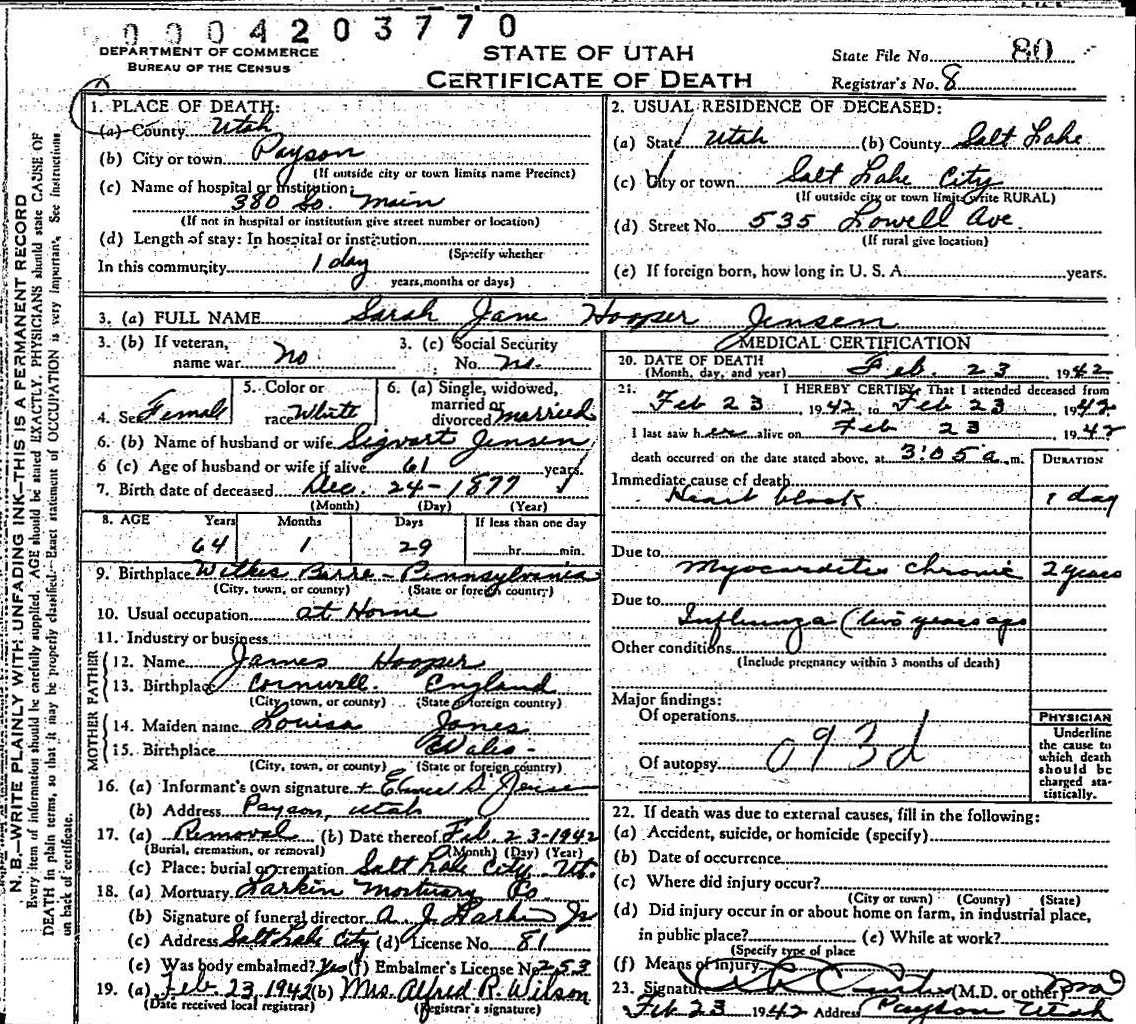 0004203770
DEPARTMENT OF COMMERCE
BUREAU OF THE CENSUS
STATE OF UTAH
CERTIFICATE OF DEATH
State File No. 80
Registrar's No. 8
N. B.—WRITE PLAINLY WITH UNFADING INK—THIS IS A PERMANENT RECORD
Every item of information should be carefully supplied. AGE should be stated EXACTLY. PHYSICIANS should state CAUSE OF
DEATH in plain terms, so that it may be properly classified. Exact statement of OCCUPATION is very important. See instructions
on back of certificate.
1. PLACE OF DEATH:
(a) County Utah
(b) City or town Payson
(If outside city or town limits name Precinct)
(c) Name of hospital or institution:
380 So. Main
(If not in hospital or institution give street number or location)
(d) Length of stay: In hospital or institution
(Specify whether
In this community 1 day
years, months or days)
2. USUAL RESIDENCE OF DECEASED:
(a) State Utah (b) County Salt Lake
(c) City or town Salt Lake City
(If outside city or town limits write RURAL)
(d) Street No. 535 Lowell Ave.
(If rural give location)
(e) If foreign born, how long in U. S. A. years.
3. (a) FULL NAME Sarah Jane Hooper Jensen
3. (b) If veteran,
name war No
3. (c) Social Security
No. no.
4. Sex Female
5. Color or
race White
6. (a) Single, widowed,
married or
divorced married
6. (b) Name of husband or wife Sigvart Jensen
6 (c) Age of husband or wife if alive 61 years
7. Birth date of deceased Dec. 24-1877
(Month) (Day) (Year)
8. AGE Years Months Days If less than one day
64 1 29 hr. min.
9. Birthplace Wilkes Barre - Pennsylvania
(City, town, or county) (State or foreign country)
10. Usual occupation at Home
11. Industry or business
FATHER
12. Name James Hooper
13. Birthplace Cornwall. England
(City, town, or county) (State or foreign country)
MOTHER
14. Maiden name Louisa Jones
15. Birthplace Wales-
(City, town, or county) (State or foreign country)
16. (a) Informant's own signature
(b) Address Payson, Utah
17. (a) Removal (b) Date thereof Feb. 23-1942
(Burial, cremation, or removal) (Month) (Day) (Year)
(c) Place: burial or cremation Salt Lake City Ut.
18. (a) Mortuary Larkin Mortuary Co
(b) Signature of funeral director A. J. Larkin Jr
(c) Address Salt Lake City (d) License No. 81
(e) Was body embalmed? Yes (f) Embalmer's License No 253
19. (a) Feb 23, 1942 (b) Mrs. Alfred R. Wilson
(Date received local registrar) (Registrar's signature)
MEDICAL CERTIFICATION
20. DATE OF DEATH
(Month, day, and year) Feb. 23 1942
21. I HEREBY CERTIFY, That I attended deceased from
Feb 23, 1942, to Feb 23, 1942
I last saw her alive on Feb 23 1942
death occurred on the date stated above, at 3:05 a. m.
DURATION
Immediate cause of death
Heart block 1 day
Due to
Myocarditis chronic 2 years
Due to
Influenza (two years ago
Other conditions
(Include pregnancy within 3 months of death)
Major findings:
Of operations
Of autopsy
093d
PHYSICIAN
Underline
the cause to
which death
should be
charged sta-
tistically.
22. If death was due to external causes, fill in the following:
(a) Accident, suicide, or homicide (specify)
(b) Date of occurrence
(c) Where did injury occur?
(City or town) (County) (State)
(d) Did injury occur in or about home on farm, in industrial place,
in public place? (e) While at work?
(Specify type of place
(f) Means of injury
23. Signature (M.D. or other) MD
Feb 23 1942 Address Payson Utah